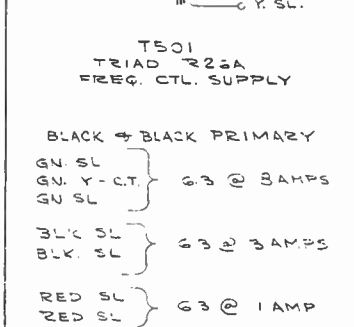 Y. SL.
T501
TRIAD R26A
FREQ. CTL. SUPPLY
BLACK & BLACK PRIMARY
GN. SL
GN. Y - C.T. 6.3 @ 3 AMPS
GN SL
BLK SL
BLK. SL 6.3 @ 3 AMPS
RED SL
RED SL 6.3 @ 1 AMP